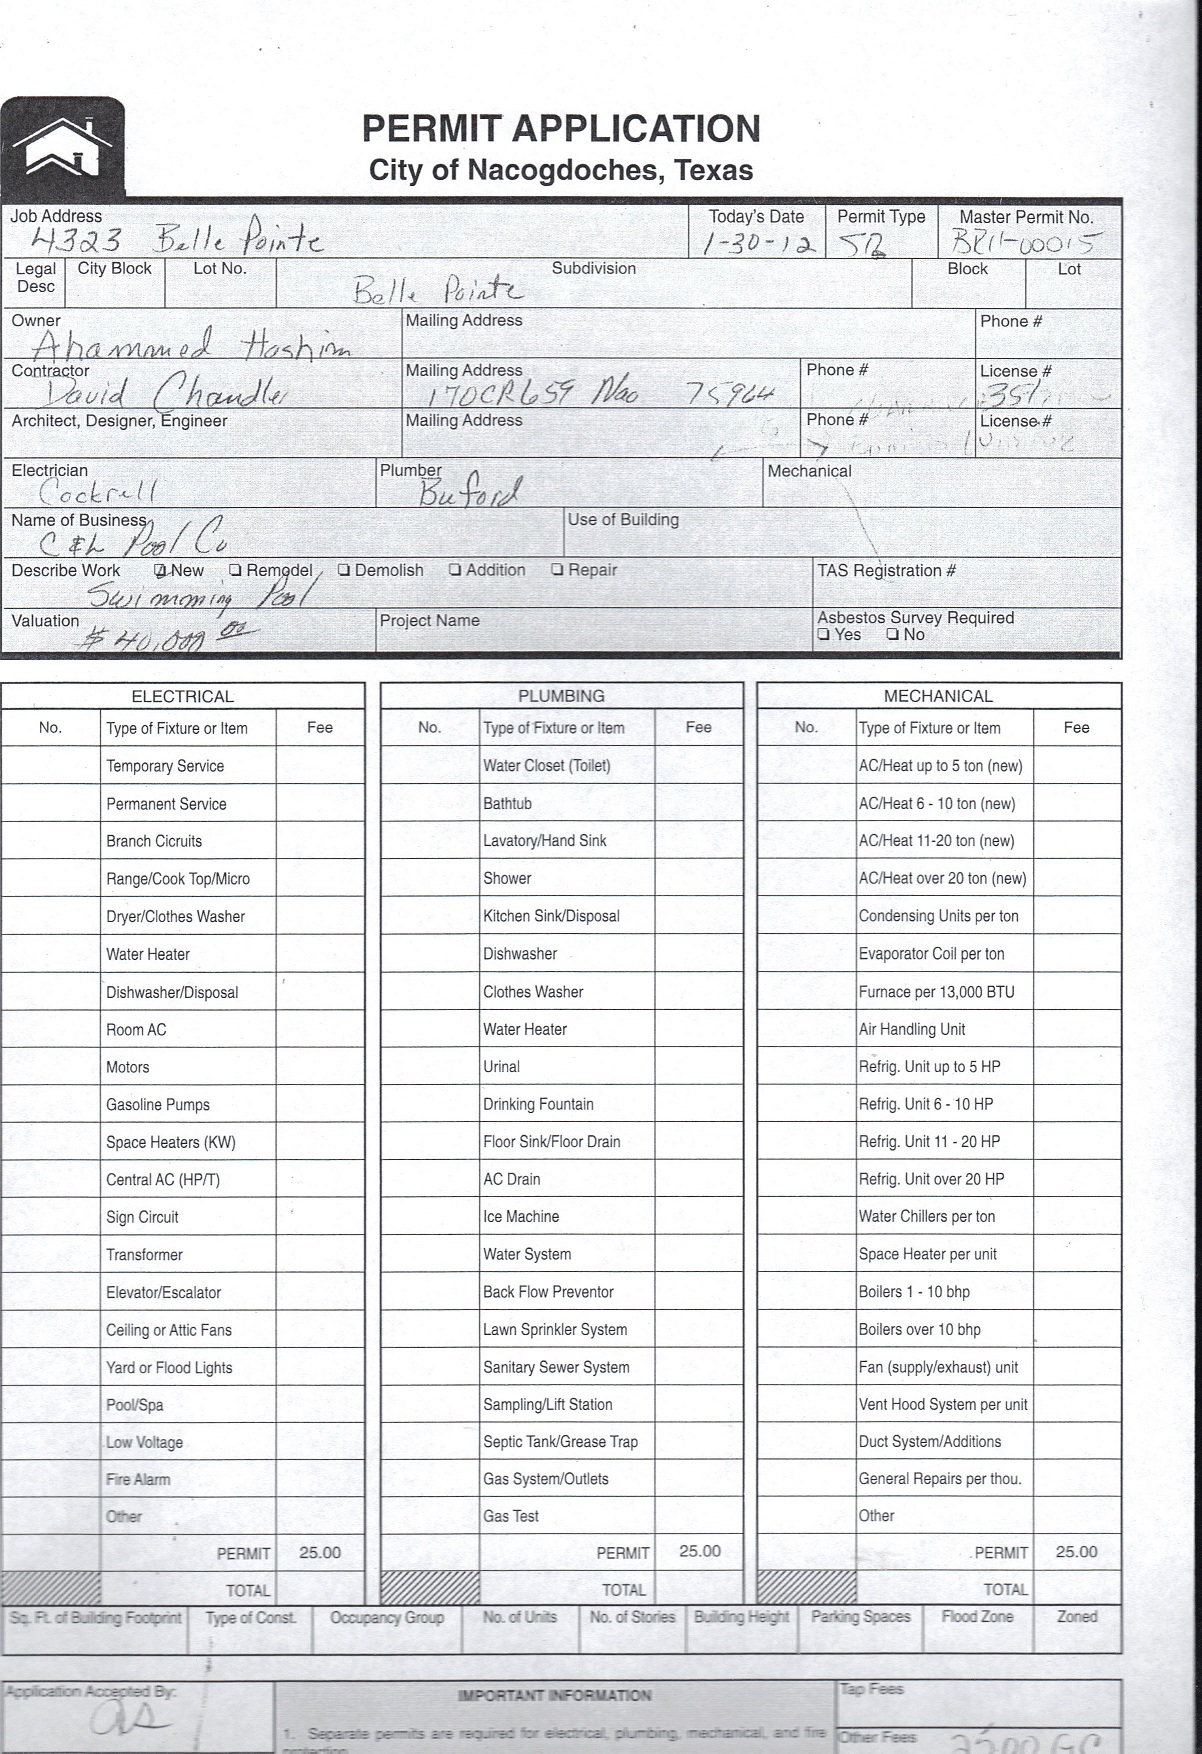 PERMIT APPLICATION
City of Nacogdoches, Texas
Job Address Today's Date Permit Type Master Permit No.
4323 Belle Pointe 1-30-12
Legal Desc City Block Lot No. Subdivision Block Lot
Belle Pointe
Owner Mailing Address Phone #
Ahammed Hashim
Contractor Mailing Address Phone # License #
David Chandler 170CR659 Nac 75964
Architect, Designer, Engineer Mailing Address Phone # License #
Electrician Plumber Mechanical
Cockrell Buford
Name of Business Use of Building
C&L Pool Co
Describe Work New Remodel Demolish Addition Repair TAS Registration #
Swimming Pool
Valuation Project Name Asbestos Survey Required
$ 40,000 00 Yes No
ELECTRICAL PLUMBING MECHANICAL
No. Type of Fixture or Item Fee No. Type of Fixture or Item Fee No. Type of Fixture or Item Fee
Temporary Service Water Closet (Toilet) AC/Heat up to 5 ton (new)
Permanent Service Bathtub AC/Heat 6 - 10 ton (new)
Branch Cicruits Lavatory/Hand Sink AC/Heat 11-20 ton (new)
Range/Cook Top/Micro Shower AC/Heat over 20 ton (new)
Dryer/Clothes Washer Kitchen Sink/Disposal Condensing Units per ton
Water Heater Dishwasher Evaporator Coil per ton
Dishwasher/Disposal Clothes Washer Furnace per 13,000 BTU
Room AC Water Heater Air Handling Unit
Motors Urinal Refrig. Unit up to 5 HP
Gasoline Pumps Drinking Fountain Refrig. Unit 6 - 10 HP
Space Heaters (KW) Floor Sink/Floor Drain Refrig. Unit 11 - 20 HP
Central AC (HP/T) AC Drain Refrig. Unit over 20 HP
Sign Circuit Ice Machine Water Chillers per ton
Transformer Water System Space Heater per unit
Elevator/Escalator Back Flow Preventor Boilers 1 - 10 bhp
Ceiling or Attic Fans Lawn Sprinkler System Boilers over 10 bhp
Yard or Flood Lights Sanitary Sewer System Fan (supply/exhaust) unit
Pool/Spa Sampling/Lift Station Vent Hood System per unit
Low Voltage Septic Tank/Grease Trap Duct System/Additions
Fire Alarm Gas System/Outlets General Repairs per thou.
Other Gas Test Other
PERMIT 25.00 PERMIT 25.00 PERMIT 25.00
TOTAL TOTAL TOTAL
Sq. Ft. of Building Footprint Type of Const. Occupancy Group No. of Units No. of Stories Building Height Parking Spaces Flood Zone Zoned
Application Accepted By: IMPORTANT INFORMATION Tap Fees
as
1. Separate permits are required for electrical, plumbing, mechanical, and fire Other Fees